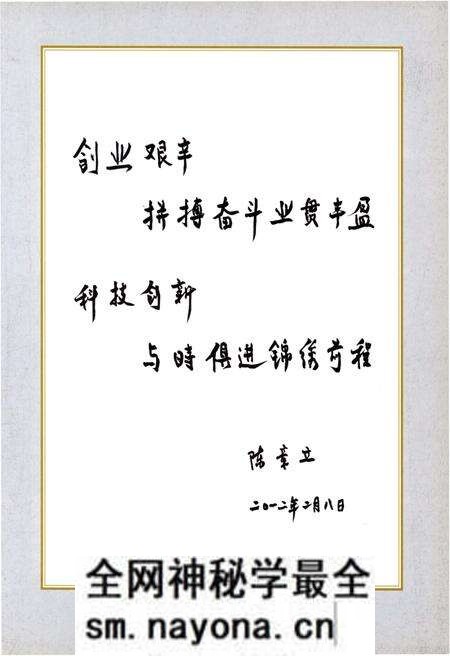 创业艰辛
拼搏奋斗业贯丰盈
科技创新
与時俱进锦绣前程
陈章立
二〇一二年二月八日
全网神秘学最全
sm.nayona.cn